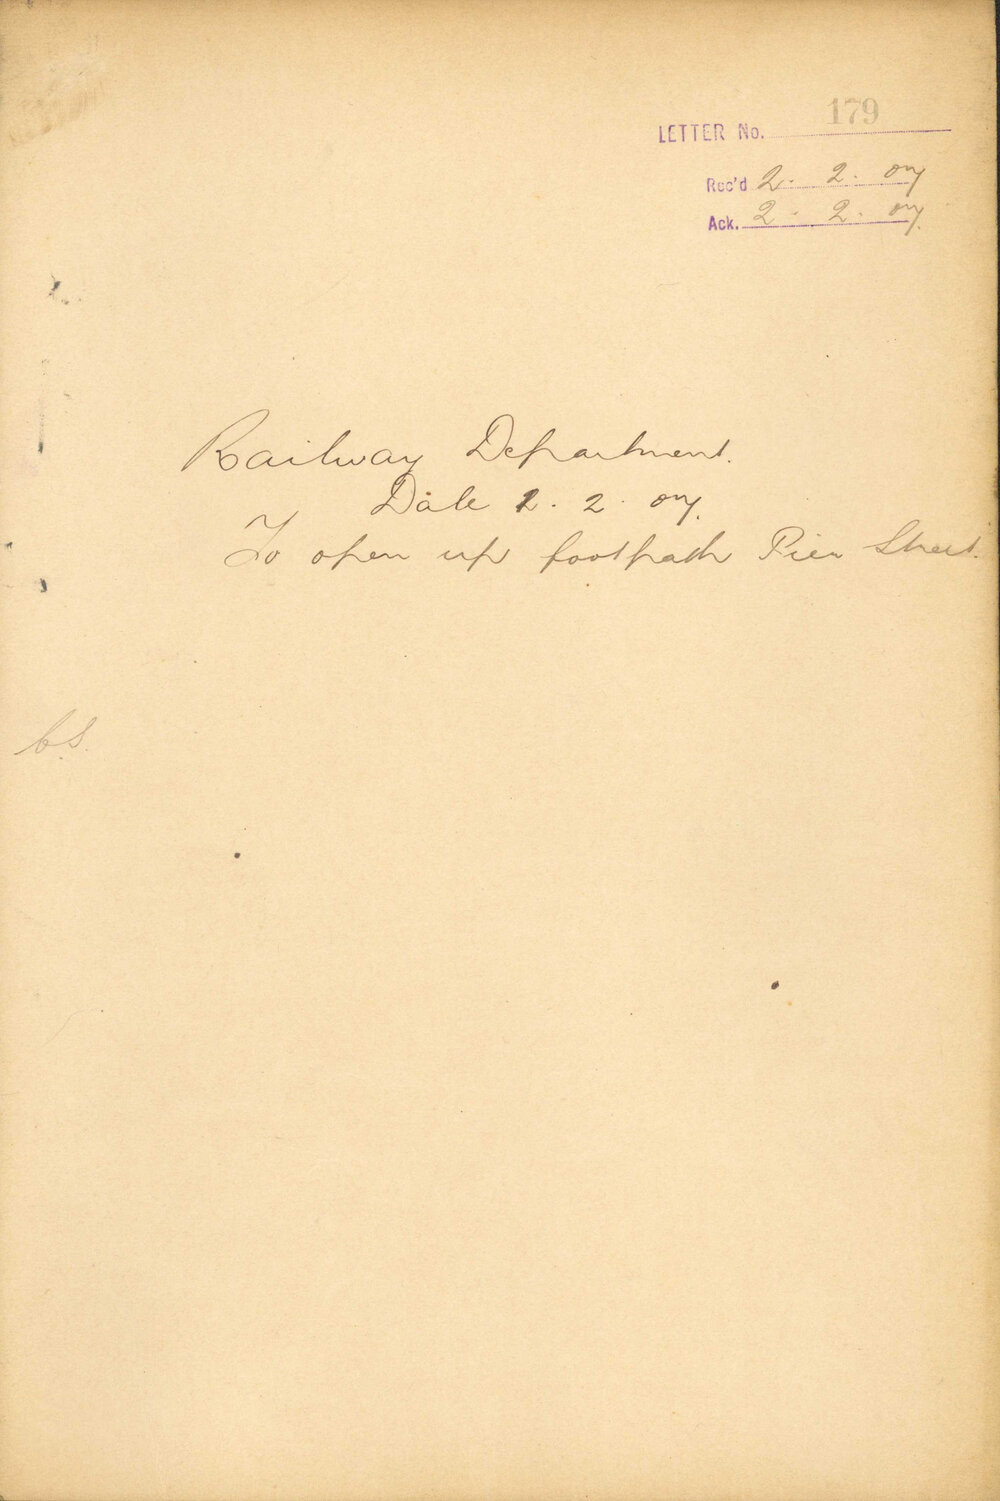 LETTER No. 179
Rec'd 2. 2. 07
Ack. 2. 2. 07.
Railway Department.
Date 2. 2. 07.
To open up footpath Pier Street.